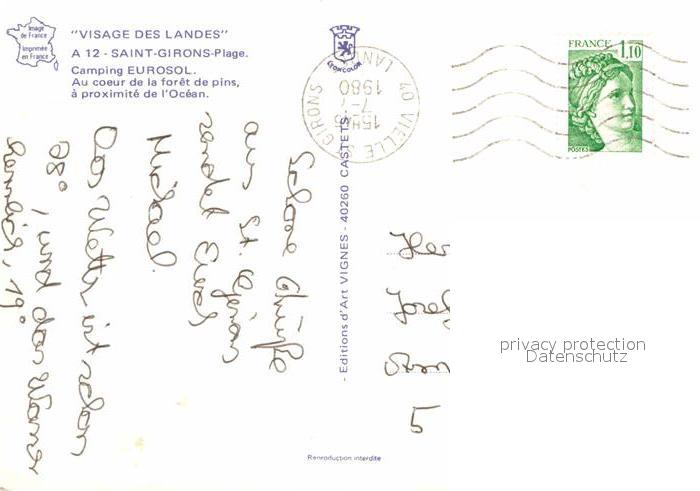 Image
de France
Imprimée
en France
"VISAGE DES LANDES"
A 12 - SAINT-GIRONS-Plage.
Camping EUROSOL.
Au coeur de la forêt de pins,
à proximité de l'Océan.
LYONCOLOR
40 VIELLE ST GIRONS
15H
7-7
1980
LAN
FRANCE
1,10
POSTES
Schöne Grüße
aus St. Giron
sendet Euch
Michael.
Das Wetter ist schön
28°, und das Wasser
herrlich, 19°
- Editions d'Art VIGNES - 40260 CASTETS
Her
Josef
5
privacy protection
Datenschutz
Reproduction interdite